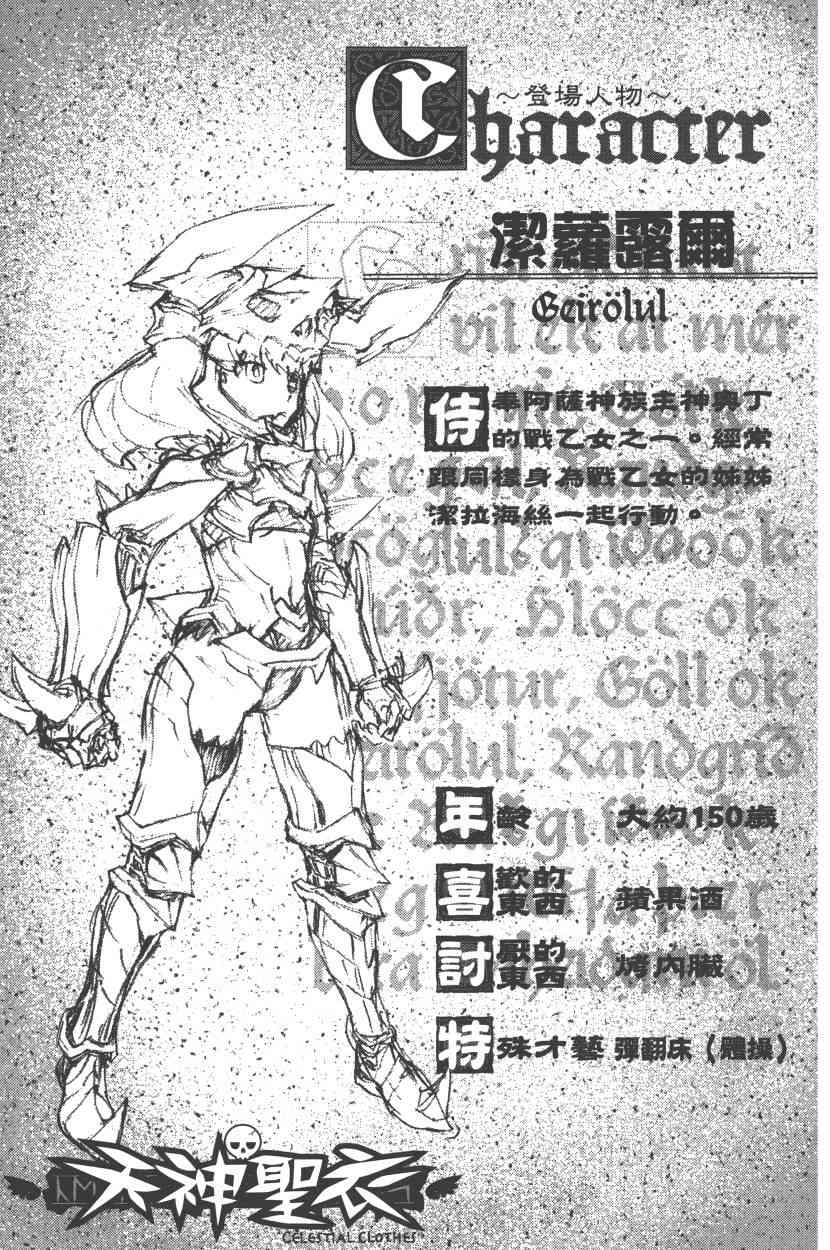 Character
～登場人物～
潔蘿露爾
Geirölul
侍奉阿薩神族主神奧丁
的戰乙女之一。經常
跟同樣身為戰乙女的姊姊
潔拉海絲一起行動。
vil ek at mér
Hlöcc ok
Göll ok
Randgríð
年齡 大約150歲
喜歡的東西 蘋果酒
討厭的東西 烤內臟
特殊才藝 彈翻床（體操）
天神聖衣
CELESTIAL CLOTHES